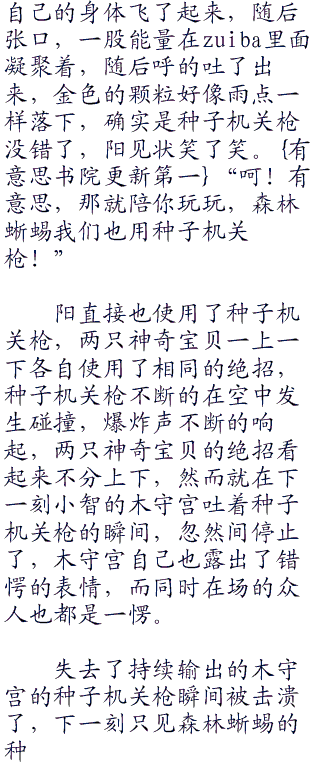 自己的身体飞了起来，随后
张口，一股能量在zuiba里面
凝聚着，随后呼的吐了出
来，金色的颗粒好像雨点一
样落下，确实是种子机关枪
没错了，阳见状笑了笑。{有
意思书院更新第一}“呵！有
意思，那就陪你玩玩，森林
蜥蜴我们也用种子机关
枪！”
阳直接也使用了种子机
关枪，两只神奇宝贝一上一
下各自使用了相同的绝招，
种子机关枪不断的在空中发
生碰撞，爆炸声不断的响
起，两只神奇宝贝的绝招看
起来不分上下，然而就在下
一刻小智的木守宫吐着种子
机关枪的瞬间，忽然间停止
了，木守宫自己也露出了错
愕的表情，而同时在场的众
人也都是一愣。
失去了持续输出的木守
宫的种子机关枪瞬间被击溃
了，下一刻只见森林蜥蜴的
种